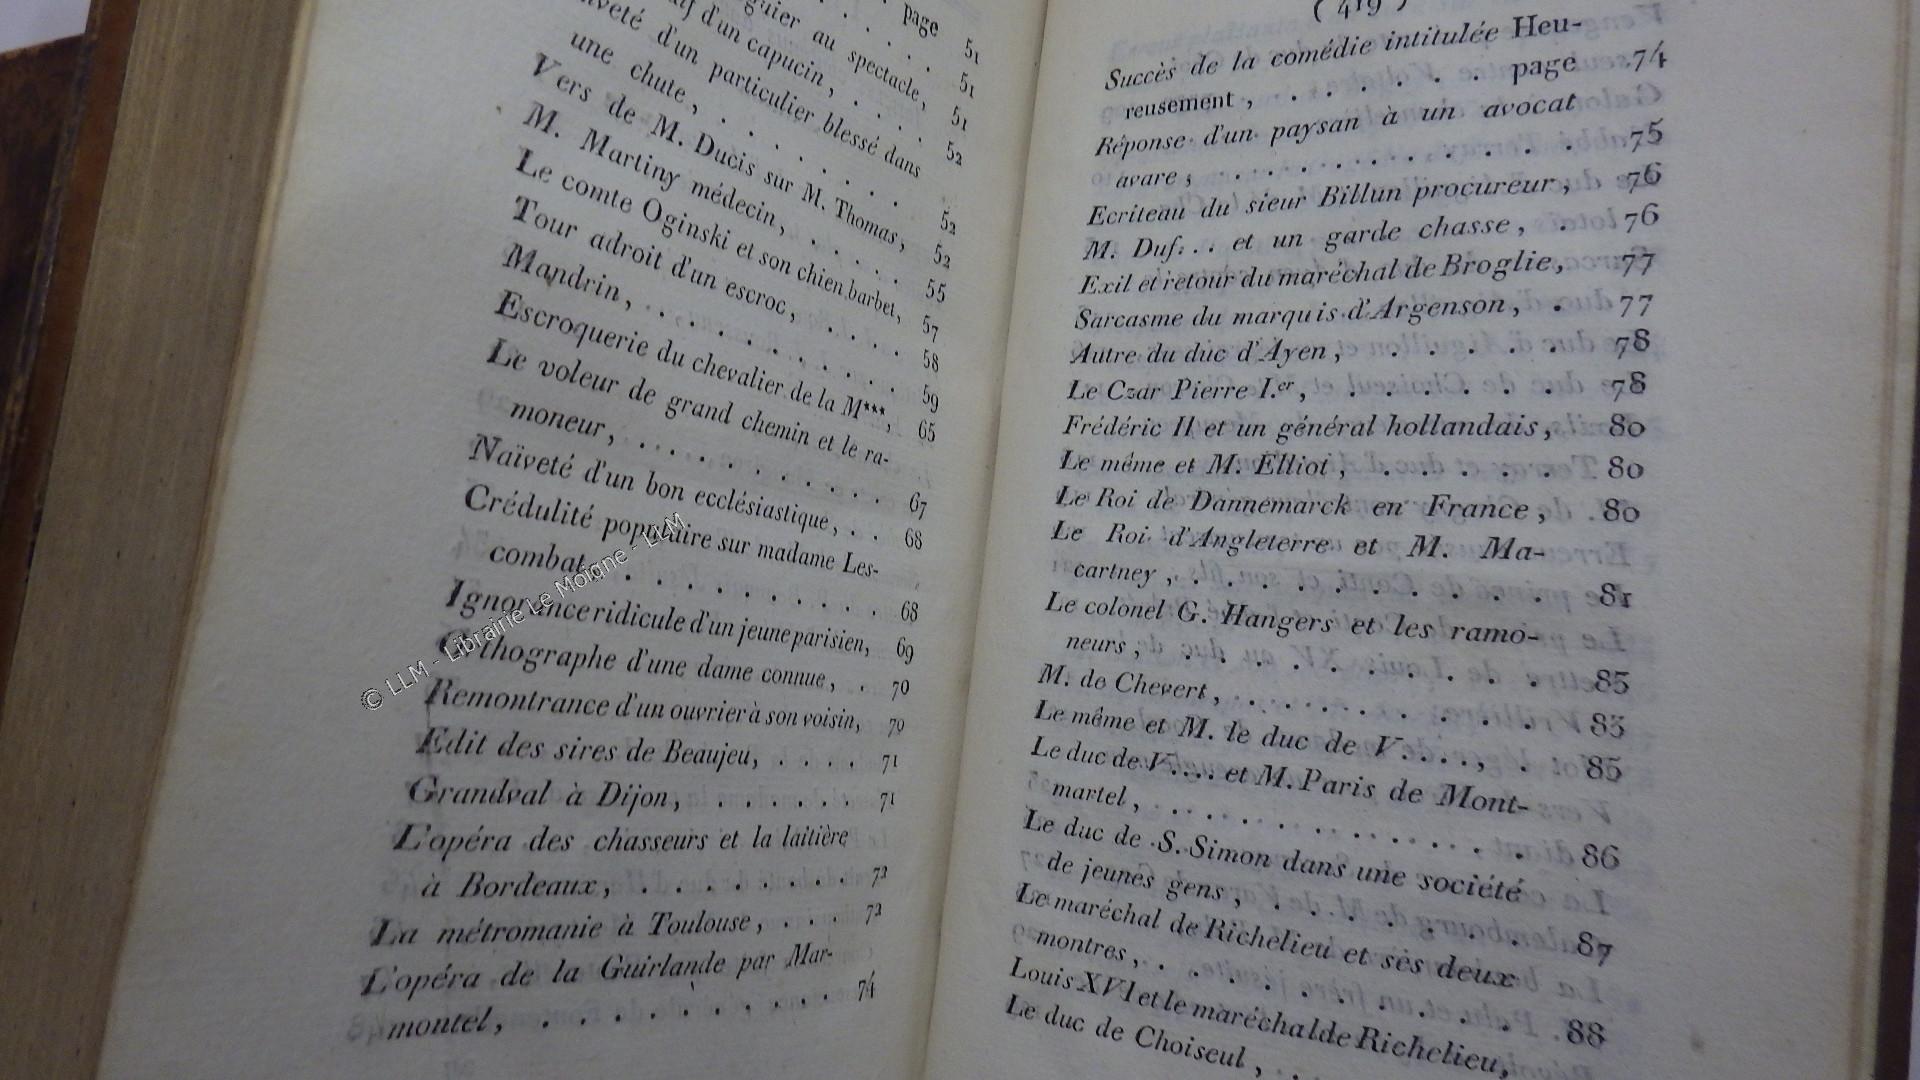 page 51
guier au spectacle, 51
d'un capucin, . . . . 51
d'un particulier blessé dans
une chute, . . . . . . . 52
Vers de M. Ducis sur M. Thomas, 52
M. Martiny médecin, . . . . . 52
Le comte Oginski et son chien barbet, 55
Tour adroit d'un escroc, . . . . 57
Mandrin, . . . . . . . . . 58
Escroquerie du chevalier de la M***, 59
Le voleur de grand chemin et le ra- 65
moneur, . . . . . . . . . . 67
Naïveté d'un bon ecclésiastique, . . 68
Crédulité populaire sur madame Les-
combat, . . . . . . . . . . 68
Ignorance ridicule d'un jeune parisien, 69
Orthographe d'une dame connue, . 70
Remontrance d'un ouvrier à son voisin, 70
Edit des sires de Beaujeu, . . . . 71
Grandval à Dijon, . . . . . . 71
L'opéra des chasseurs et la laitière
à Bordeaux, . . . . . . . 72
La métromanie à Toulouse, . . . 72
L'opéra de la Guirlande par Mar-
montel, . . . . . . . . . 74
( 419 )
Succès de la comédie intitulée Heu-
reusement, . . . . . . page 74
Réponse d'un paysan à un avocat
avare, . . . . . . . . . . 75
Ecriteau du sieur Billun procureur, 76
M. Duf... et un garde chasse, . 76
Exil et retour du maréchal de Broglie, 77
Sarcasme du marquis d'Argenson, . 77
Autre du duc d'Ayen, . . . . . 78
Le Czar Pierre I.er, . . . . . . 78
Frédéric II et un général hollandais, 80
Le même et M. Elliot, . . . . . 80
Le Roi de Dannemarck en France, 80
Le Roi d'Angleterre et M. Ma-
cartney, . . . . . . . . . . 81
Le colonel G. Hangers et les ramo-
neurs, . . . . . . . . . . 83
M. de Chevert, . . . . . . . . 83
Le même et M. le duc de V...., . 85
Le duc de V.... et M. Paris de Mont-
martel, . . . . . . . . . . 86
Le duc de S. Simon dans une société
de jeunes gens, . . . . . . . 87
Le maréchal de Richelieu et ses deux
montres, . . . . . . . . . . 88
Louis XVI et le maréchal de Richelieu,
Le duc de Choiseul, . .
© LLM - Librairie Le Moigne - LLM